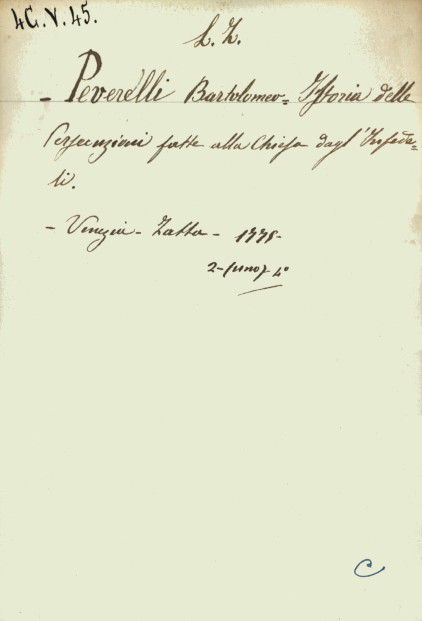 4G.V.45.
L. Z.
- Peverelli Bartolomeo = Istoria delle
Persecuzioni fatte alla Chiesa dagl'Infede-
li.
- Venezia - Zatta - 1775-
2- (uno) 4°
C